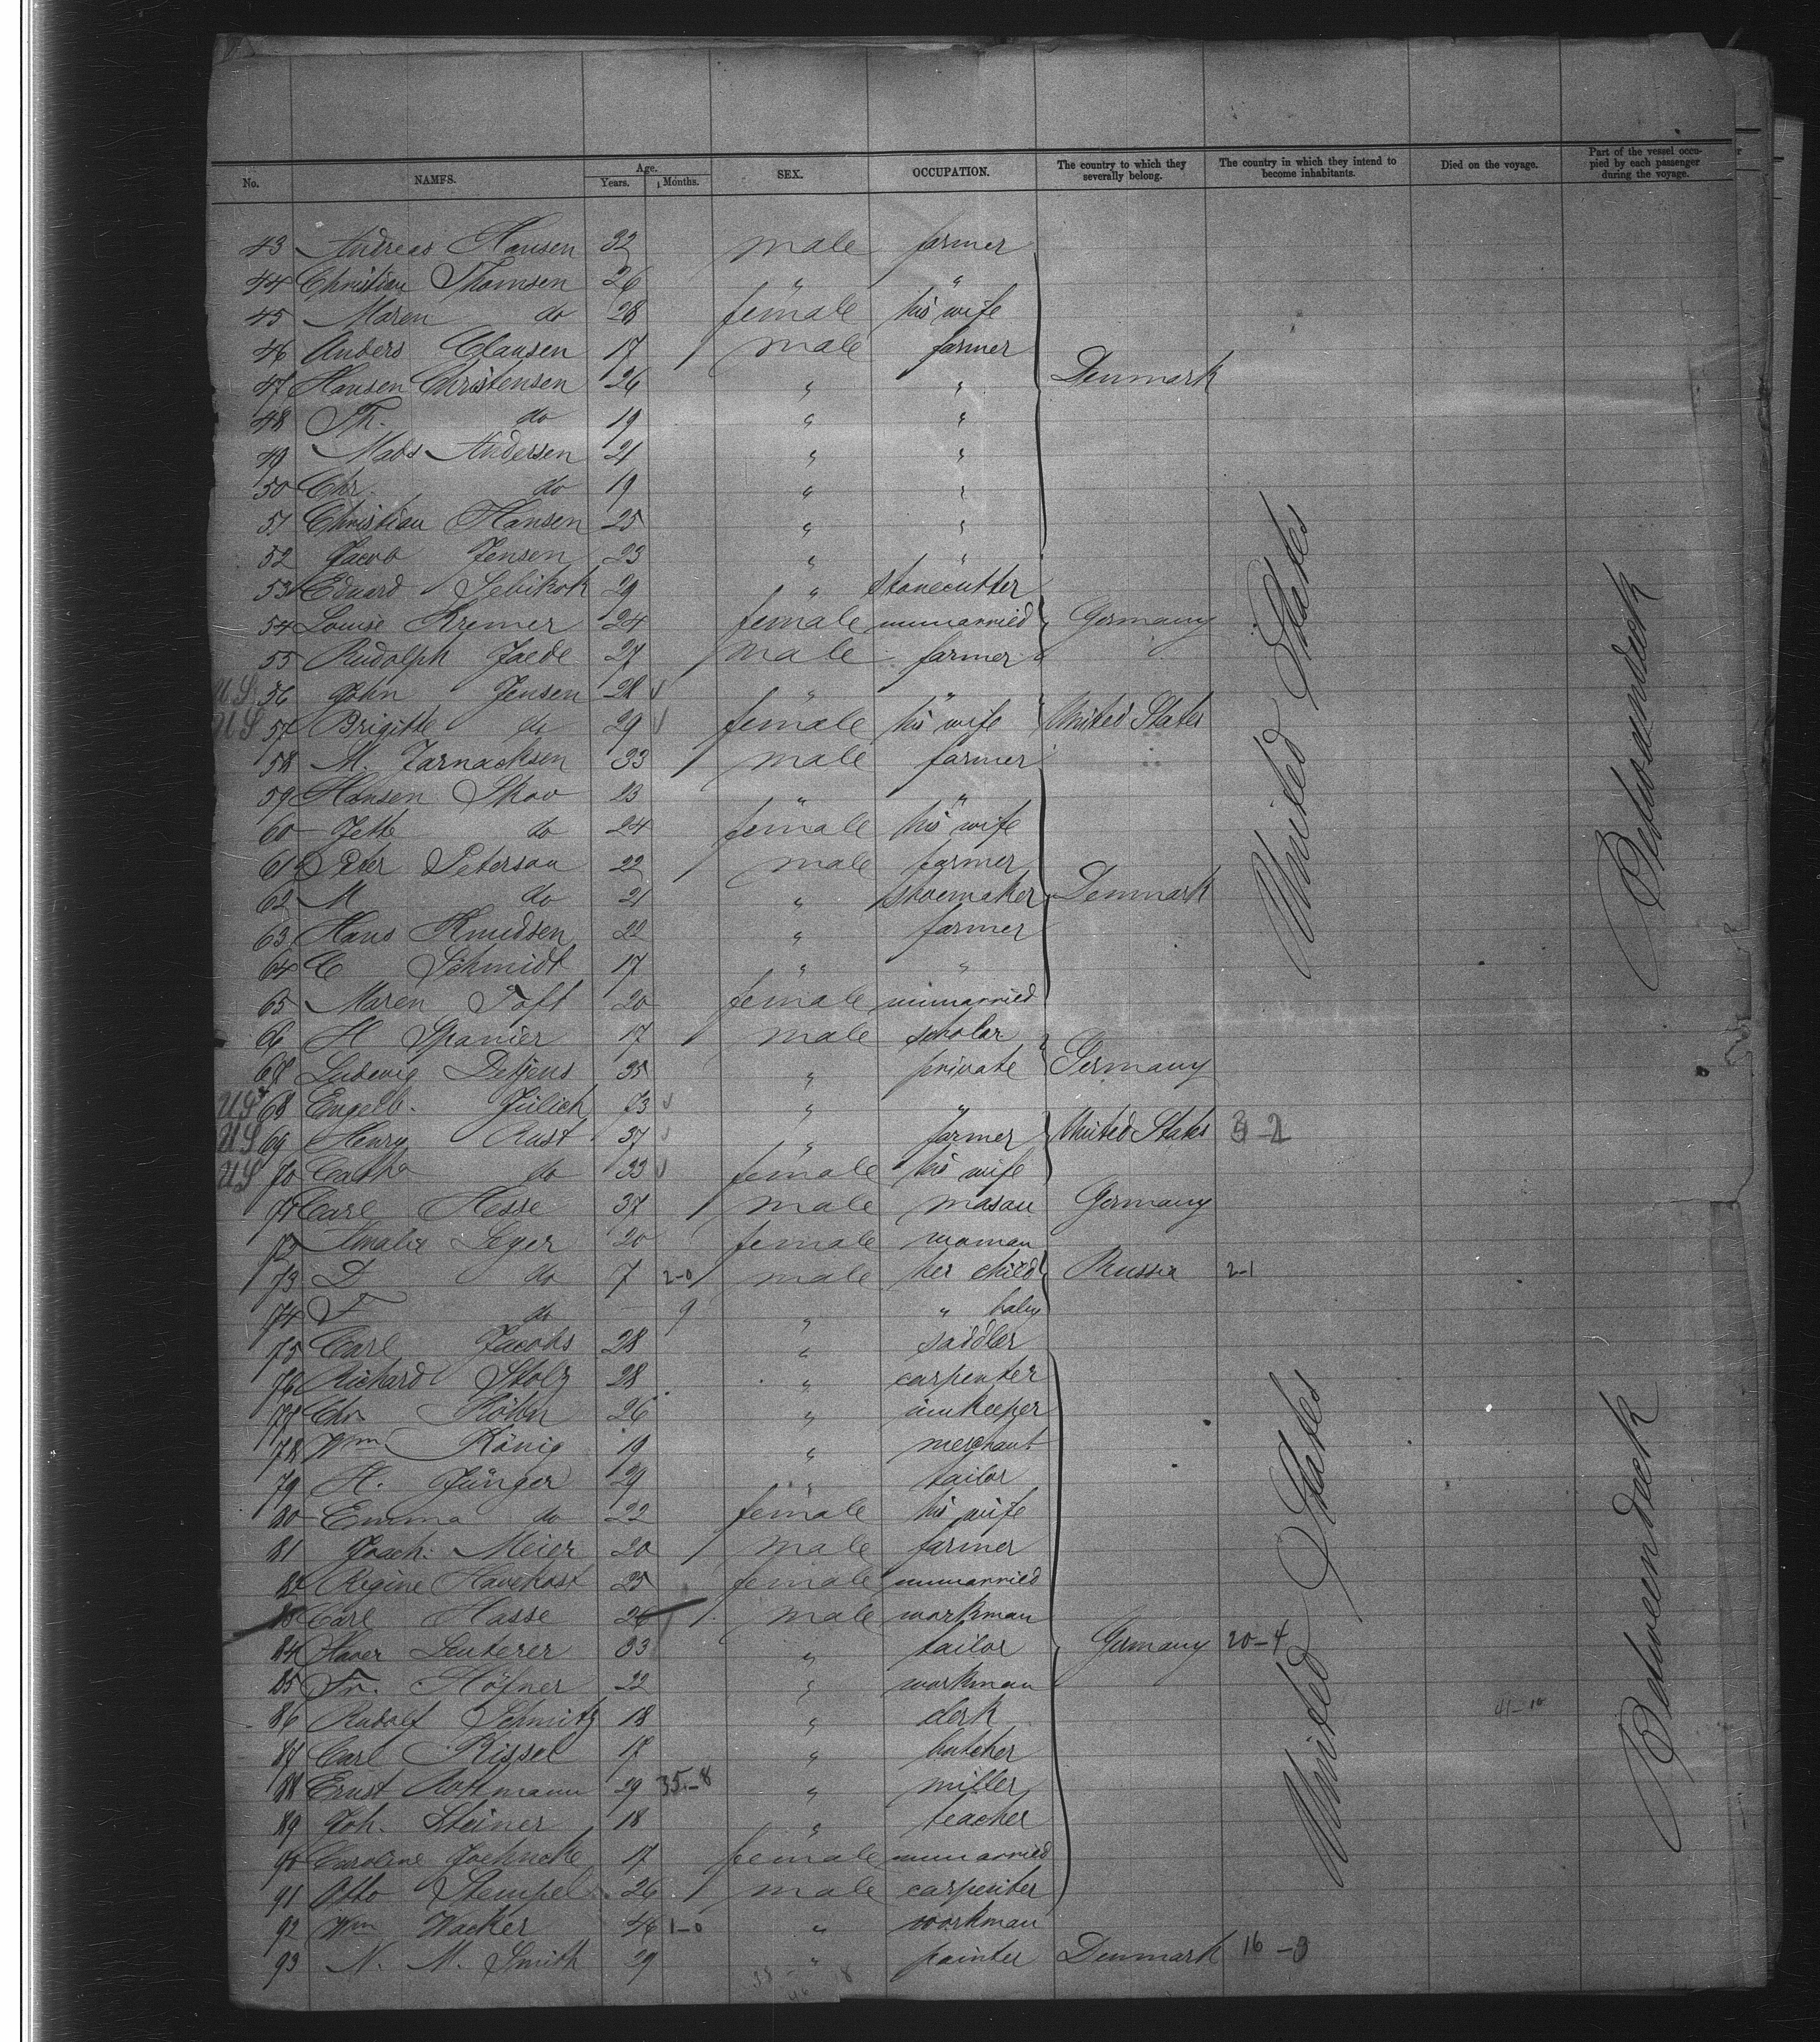 No. NAMES. Age. Years. Months. SEX. OCCUPATION. The country to which they severally belong. The country in which they intend to become inhabitants. Died on the voyage. Part of the vessel occupied by each passenger during the voyage.
43 Andreas Hansen 32 male farmer
44 Christian Thomsen 26 " "
45 Maren do 28 female his wife
46 Anders Clausen 17 male farmer
47 Hansen Christensen 26 " " Denmark
48 Th. do 19 " "
49 Mads Andersen 21 " "
50 Chr. do 19 " "
51 Christian Hansen 25 " "
52 Jacob Jensen 23 " "
53 Eduard 29 " stonecutter
54 Louise Kremer 24 female unmarried Germany
55 Rudolph Jaede 27 male farmer
US 56 John Jensen 28 " "
US 57 Brigitte do 29 female his wife United States
58 M. Jarnacksen 33 male farmer
59 Hansen Skov 23 " "
60 Jette do 24 female his wife
61 Peter Peterson 22 male farmer
62 M do 21 " shoemaker Denmark
63 Hans Knudsen 22 " farmer
64 C Schmidt 17 " "
65 Maren Toft 20 female unmarried
66 H Spanier 17 male scholar
68 Ludewig Detjens 35 " private Germany
US 68 Engelb. Jülich 73 " "
US 69 Henry Rust 37 " farmer United States 3-2
US 70 Catha do 33 female his wife
71 Carl Hesse 37 male mason Germany
72 Amalie Leger 20 female woman
73 D do 7 2-0 male her child Russia 2-1
74 F do 9 " " baby
75 Carl Jacobs 28 " saddler
76 Richard Stolz 28 " carpenter
77 Chr. Röhn 26 " innkeeper
78 Wm König 19 " merchant
79 H. Jünger 29 " tailor
80 Emma do 22 female his wife
81 Joach. Meier 20 male farmer
82 Regine Havekost 25 female unmarried
83 Carl Hasse 26 male workman
84 Xaver Leuterer 33 " tailor Germany 20-4
85 Fr. Höfner 22 " workman
86 Rudolf Schmitz 18 " clerk
87 Carl Rissel 17 " butcher
88 Ernst Rottmann 29 35-8 " miller
89 Joh. Steiner 18 " teacher
90 Caroline Joehncke 17 female unmarried
91 Otto Stempel 26 male carpenter
92 Wm Wacker 46 1-0 " workman
93 N. M. Smith 29 " painter Denmark 16-3
United States
Betweendeck
United States
Betweendeck